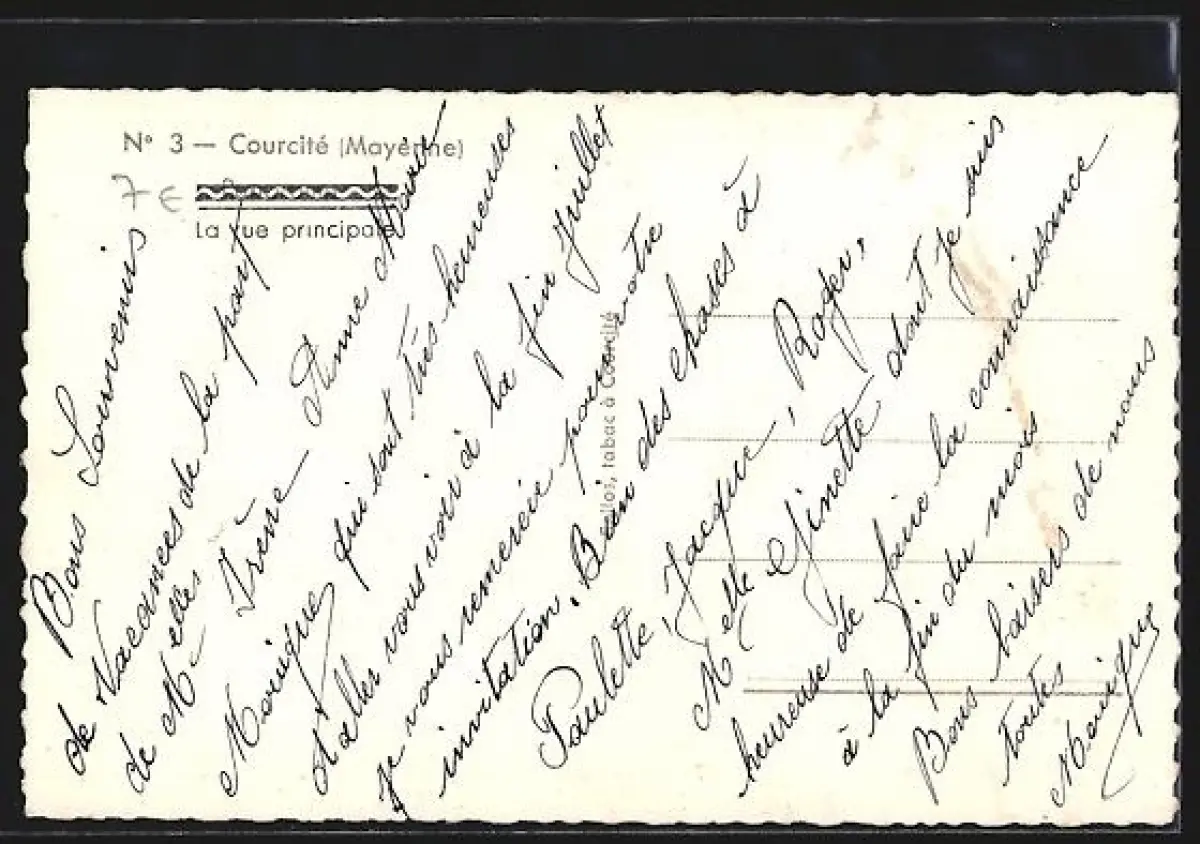 N° 3 — Courcité (Mayenne)
7 €
La vue principale
tabac à Courcité
Bons Souvenirs
de Vacances de la part
de Melles Irène Anne Marie
Monique qui sont très heureuses
d'aller vous voir à la fin Juillet
je vous remercie pour votre
invitation. Bien des choses à
Paulette, Jacques, Roger,
Melle Ginette dont je suis
heureuse de faire la connaissance
à la fin du mois
Bons baisers de nous
toutes
Monique